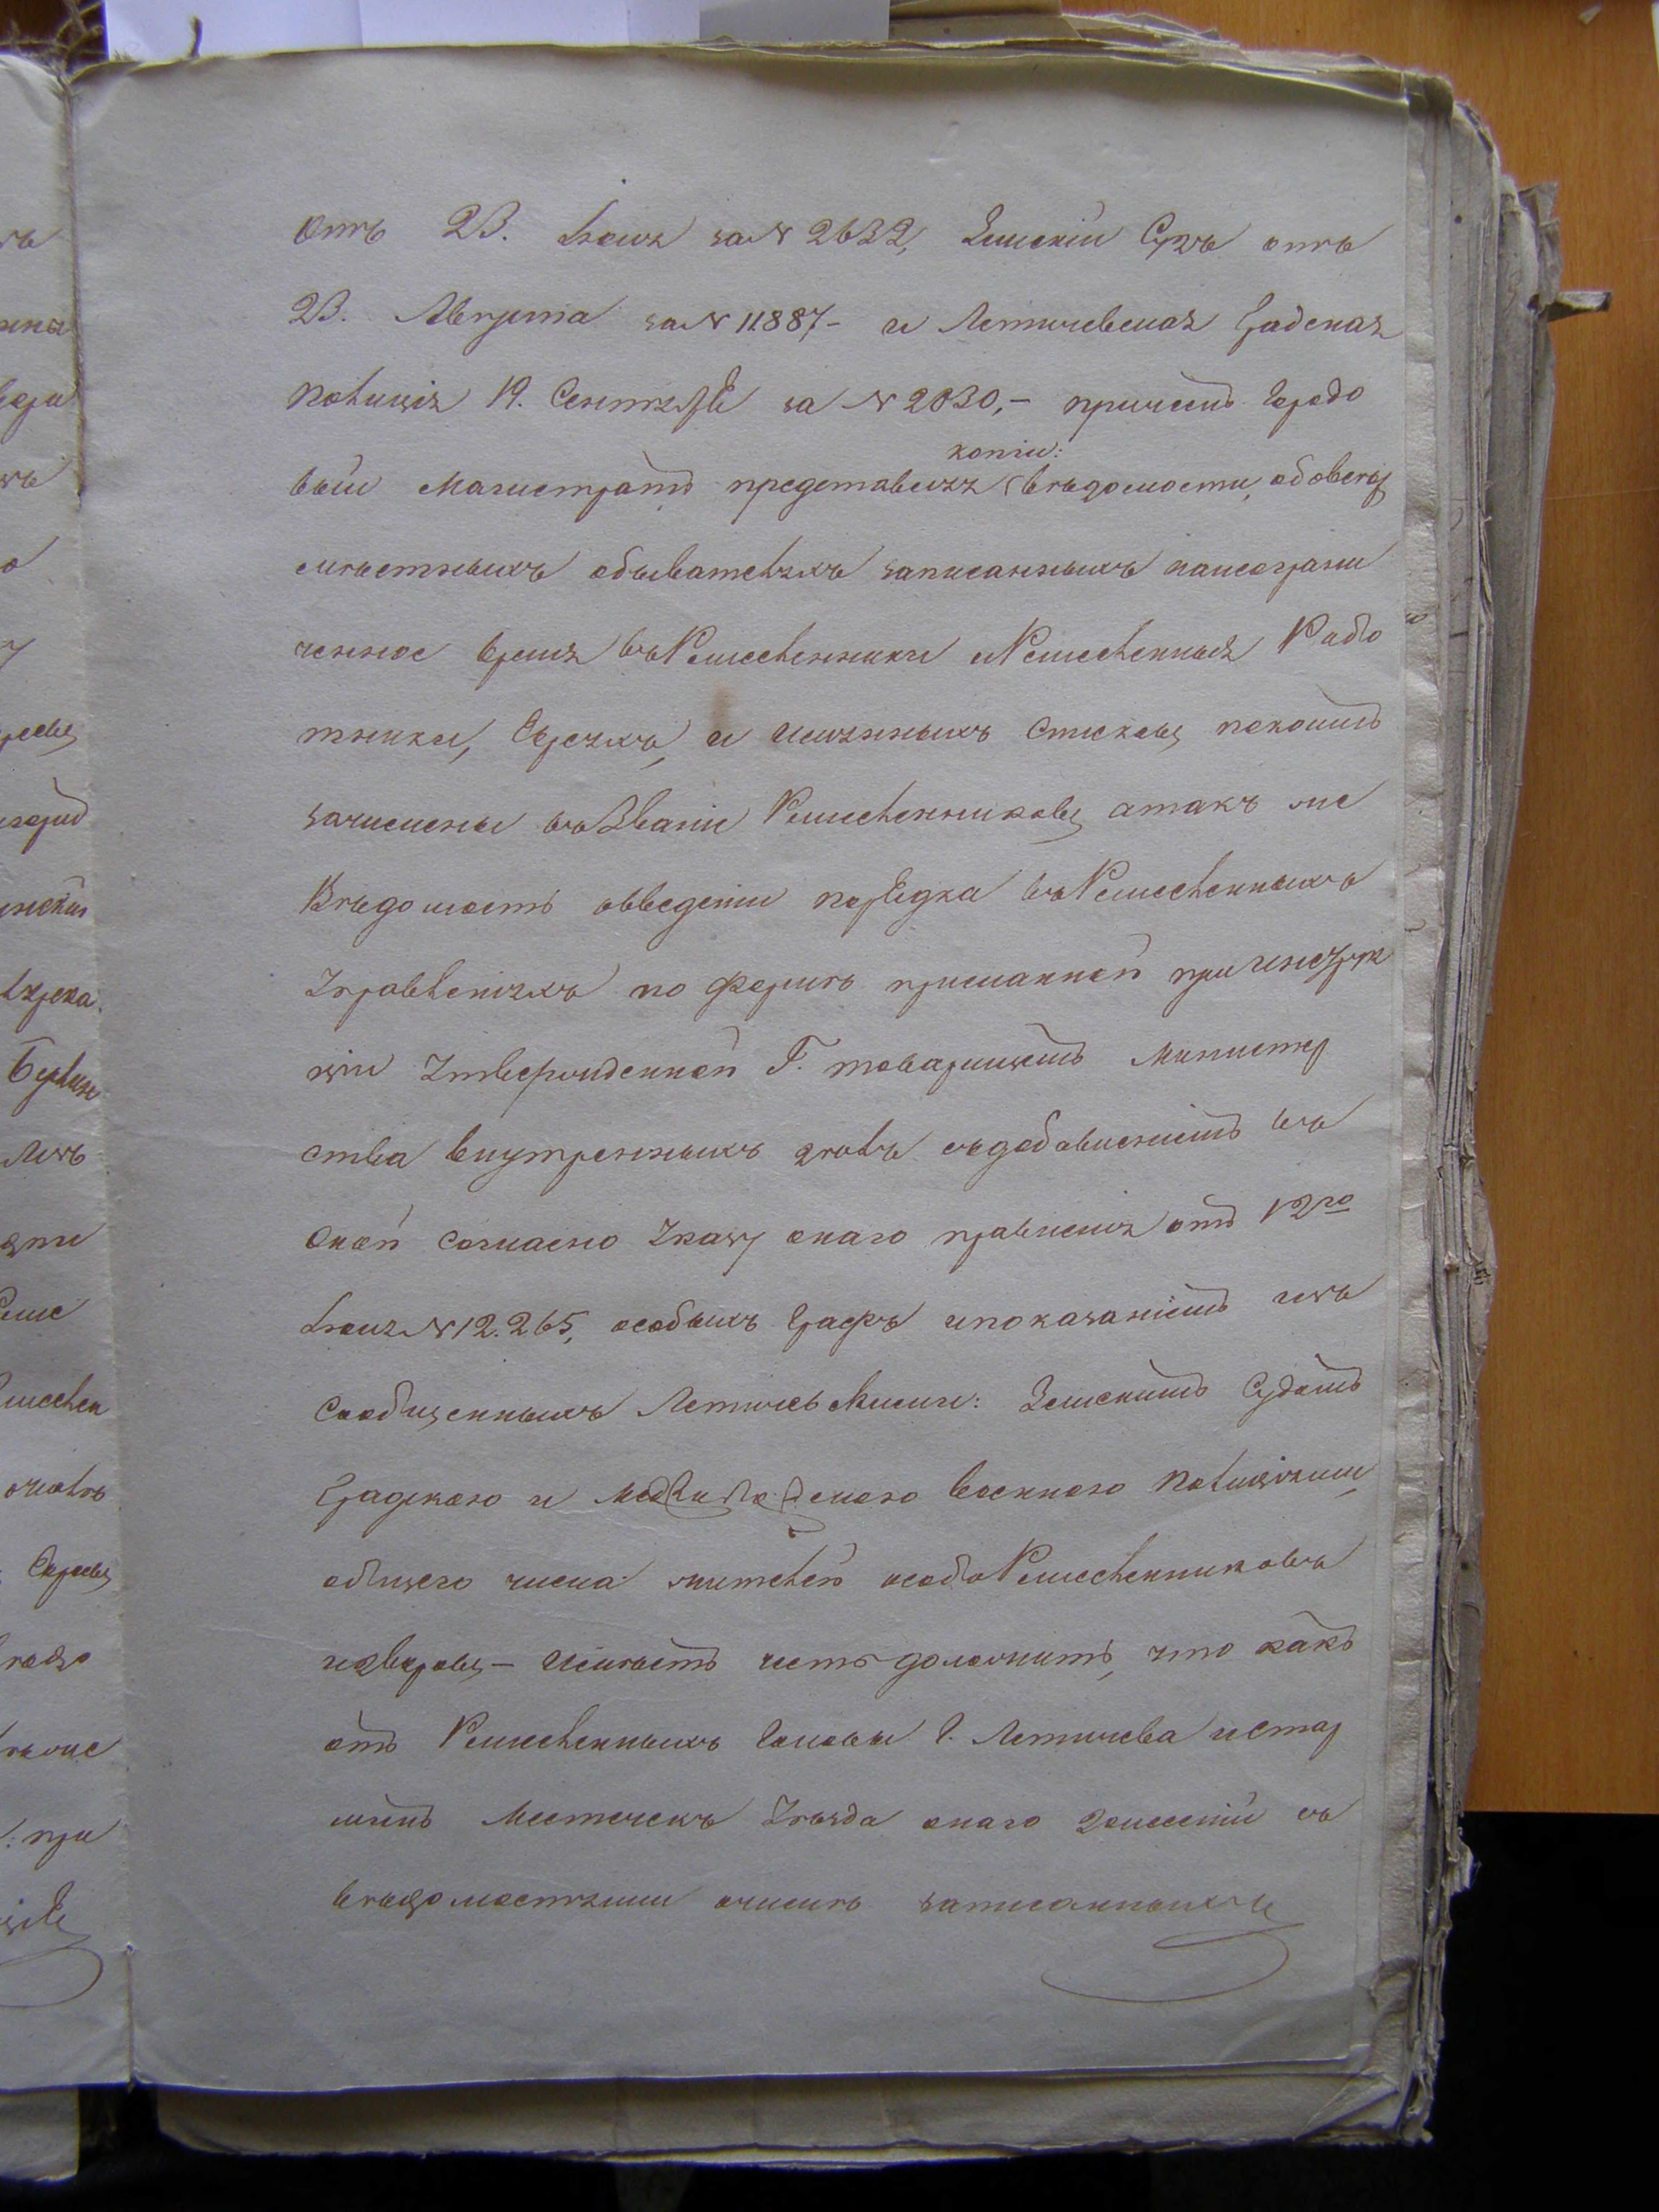 отъ 23. Іюля за № 2632, Земскій Судъ отъ
23. Августа за № 11887- и Летичевская Градская
Полиція 19. Сентября за № 2030,- причемъ Городо
вый Магистратъ представляя копіи: Вѣдомости, обо всѣхъ
мѣстныхъ обывателяхъ записанныхъ на неограни
ченное время въ Ремесленники и Ремесленныя Рабо
тники, Евреяхъ, и имянныхъ Списковъ, покоимъ
зачислены въ Званіи Ремесленниковъ, а такъ же
Вѣдомость о введеніи порядка въ Ремесленныхъ
Управленіяхъ по формѣ присланной при инструк
ціи Утвержденной Г. товарищемъ Министер
ства внутреннихъ дѣлъ съ добавленіемъ въ
оной согласно Указу онаго правленія отъ 12го
Іюля № 12.265, особыхъ Графъ и показаніемъ изъ
сообщенныхъ Летичевскими: Земскимъ Судомъ
Градскою и Меджибожскою военною Полиціями,
общаго числа жителей и особо Ремесленниковъ
и Евреевъ,- Имѣетъ честь доложить, что какъ
отъ Ремесленныхъ Головы Г. Летичева и Стар
шинъ Местечекъ Уѣзда онаго донесеній съ
вѣдомостями о числѣ записанныхъ